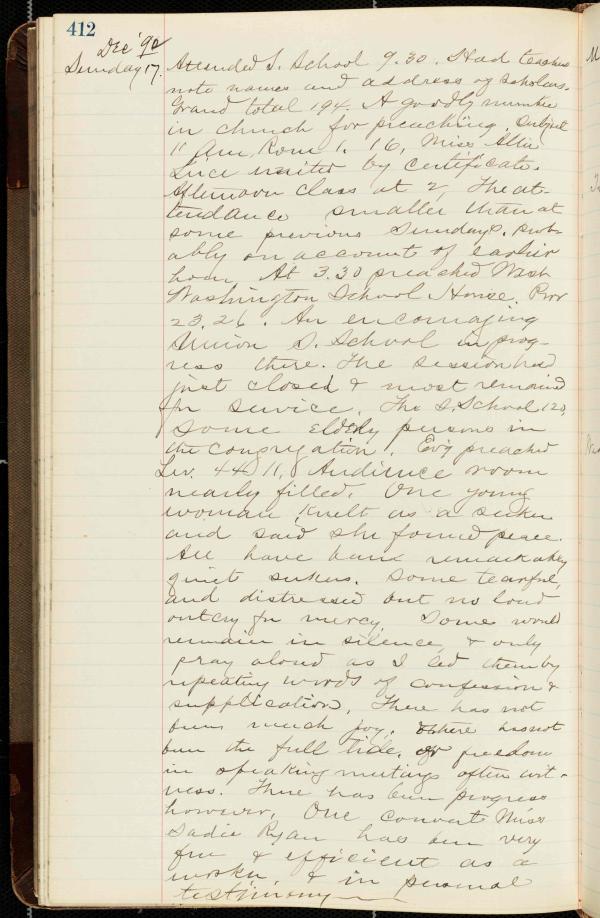 412
Dec '92
Sunday 17. Attended S. School 9.30. Had teachers
note names and address of scholars.
Grand total 194. A goodly number
in church for preaching. Subject
11 am, Rom 1. 16, Miss Allie
united by certificate.
Afternoon class at 2, The at-
tendance smaller than at
some previous Sundays. Prob-
ably on account of earlier
hour. At 3.30 preached West
Washington School House. Prov
23.26. An encouraging
Union S. School in prog-
ress there. The session had
just closed & most remained
for service. The S. School 120,
Some elderly persons in
the congregation. Ev'g preached
44 11, Audience room
nearly filled. One young
woman knelt as a seeker
and said she found peace.
All have been remarkably
quiet seekers. Some tearful,
and distressed but no loud
outcry for mercy. Some would
remain in silence, & only
pray aloud as I led them by
repeating words of confession &
supplication. There has not
been much joy. There has not
been the full tide, or freedom
in speaking meetings often wit-
ness. There has been progress
however. One convert Miss
Sadie Ryan has been very
free & efficient as a
worker, & in personal
testimony